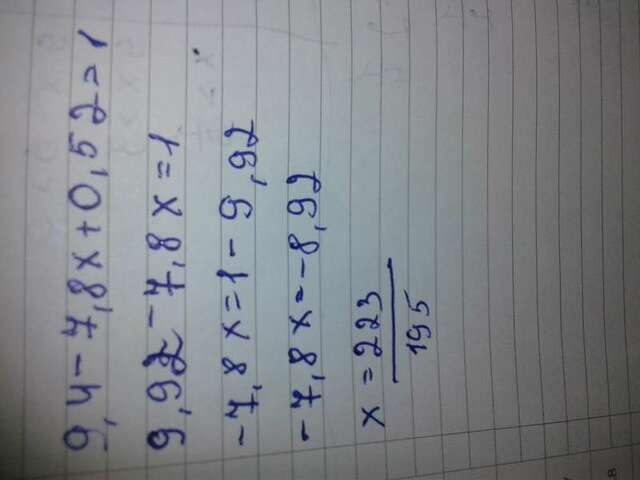 9,4-7,8x+0,52=1
9,92-7,8x=1
-7,8x=1-9,92
-7,8x=-8,92
x=223
195